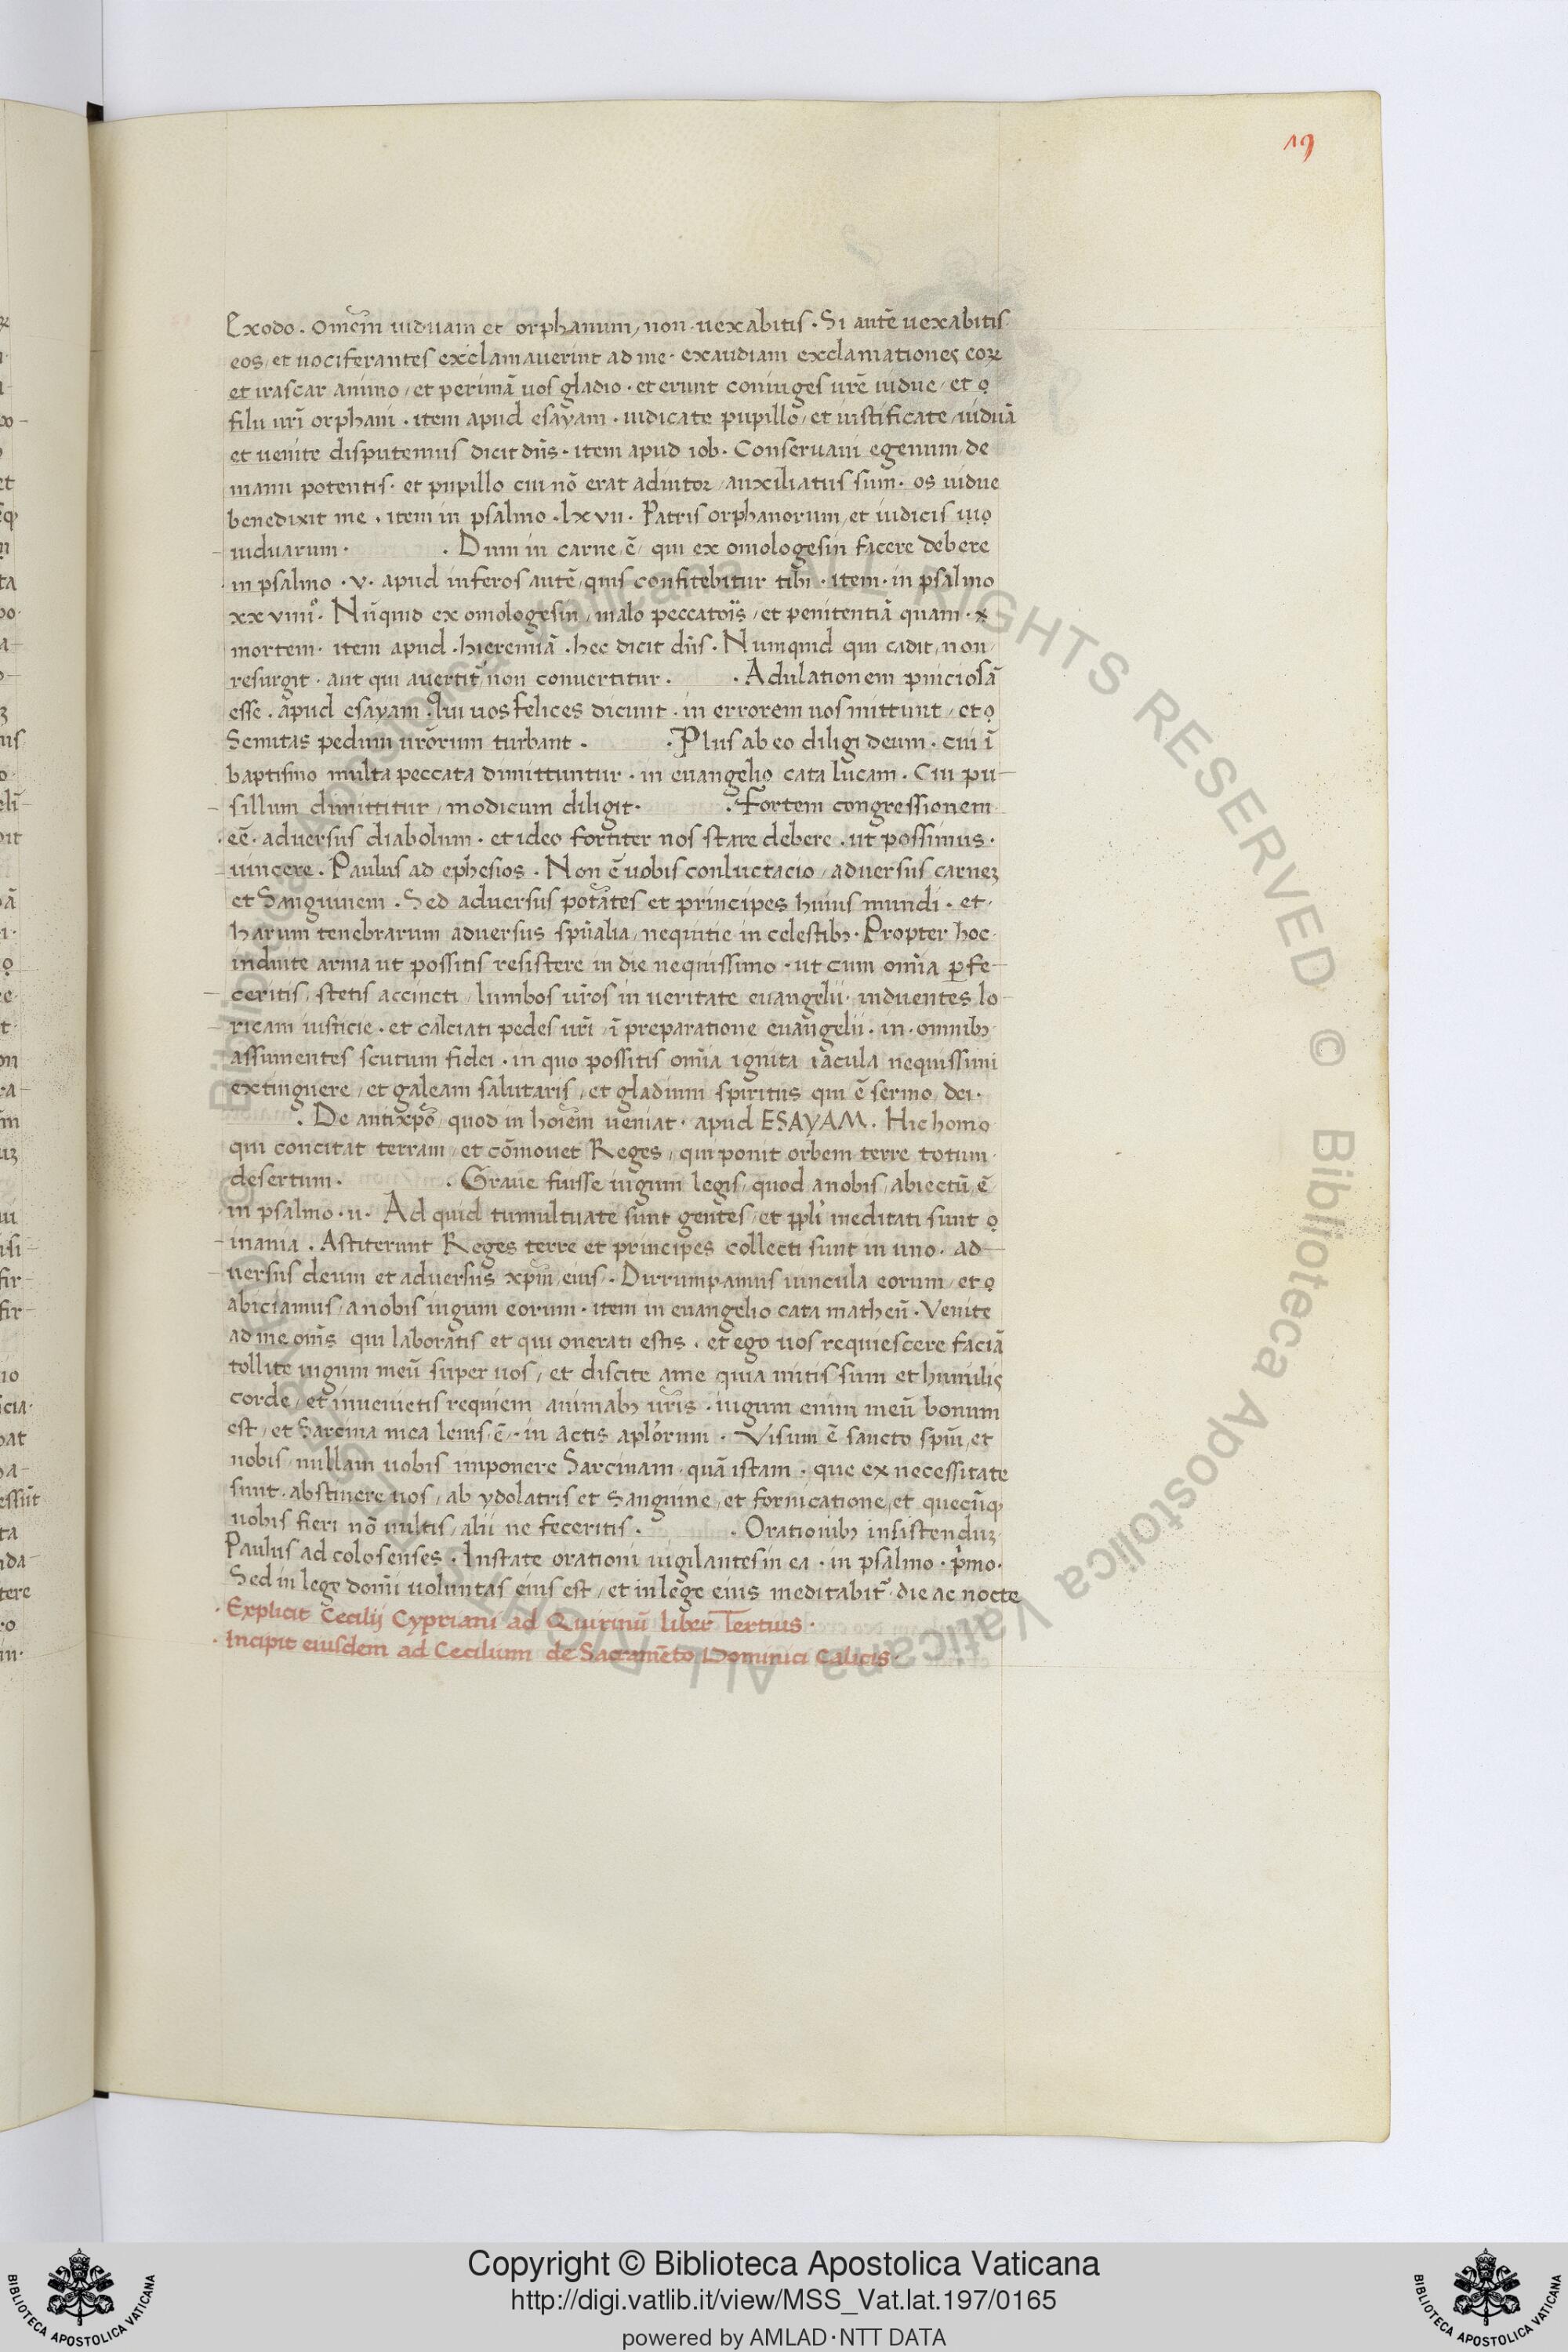 19
Exodo . omēm uiduam et orphanum, non uexabitis . Si autē uexabitis
eos, et uociferantes exclamauerint ad me . exaudiam exclamationes eoꝝ
et irascar animo, et perimā uos gladio . et erunt coniuges urē uidue, et
filii urī orphani . item apud esayam . iudicate pupillo, et iustificate uiduā
et uenite disputemus dicit dn̄s . item apud iob . Conseruaui egenum, de
manu potentis . et pupillo cui nō erat adiutor, auxiliatus sum . os uidue
benedixit me . item in psalmo . lxvii . Patris orphanorum, et iudicis
uiduarum . . Dum in carne ē, qui ex omologesin facere debere
in psalmo . v . apud inferos autē, quis confitebitur tibi . item . in psalmo
Nūquid ex omologesin, malo peccatoris, et penitentiā quam
mortem . item apud . hieremiā . hec dicit dn̄s . Numquid qui cadit, non
resurgit . aut qui auertit, non conuertitur . . Adulationem p̄niciosā
esse . apud esayam . Qui uos felices dicunt . in errorem uos mittunt, et
Semitas pedum urōrum turbant . . Plus ab eo diligi deum . cui ī
baptismo multa peccata dimittuntur . in euangelio cata lucam . Cui pu-
sillum dimittitur, modicum diligit . . Fortem congressionem
eē . aduersus diabolum . et ideo fortiter nos stare debere . ut possimus .
uincere . Paulus ad ephesios . Non ē uobis conluctacio, aduersus carneꝫ
et Sanguinem . Sed aduersus potātes et principes huius mundi . et .
harum tenebrarum aduersus spūalia, nequitie in celestibꝫ . Propter hoc
induite arma ut possitis resistere in die nequissimo . ut cum omīa ꝑfe-
ceritis, stetis accincti, lumbos ur̄os in ueritate euangelii . induentes lo-
ricam iusticie . et calciati pedes urī, ī preparatione euāngelii . in . omnibꝫ
assumentes scutum fidei . in quo possitis omīa ignita iacula nequissimi
extinguere, et galeam salutaris, et gladium spiritus qui ē sermo, dei .
. De antixpō, quod in hoīem ueniat . apud ESAYAM . Hic homo
qui concitat terram, et cōmouet Reges, qui ponit orbem terre totum
desertum . . Graue fuisse iugum legis, quod a nobis, abiectū, ē
in psalmo . ii . Ad quid tumultuate sunt gentes, et ppl̄i meditati sunt
inania . Astiterunt Reges terre et principes collecti sunt in uno . ad-
uersus deum et aduersus xpm̄ eius . Dirrumpamus uincula eorum, et
abiciamus, a nobis iugum eorum . item in euangelio cata matheū . Venite
ad me om̄s qui laboratis et qui onerati estis . et ego uos requiescere faciā
tollite iugum meū super uos, et discite a me quia mitis sum et humilis
corde, et inuenietis requiem animabꝫ ur̄is . iugum enim meū bonum
est, et Sarcina mea leuis, ē . in actis apl̄orum . Visum ē sancto spū, et
nobis nullam uobis imponere Sarcinam . quā istam . que ex necessitate
sunt . abstinere uos, ab ydolatris et Sanguine, et fornicatione, et quecūqꝫ
uobis fieri nō uultis, alii ne feceritis . . Orationibꝫ insistenduꝫ
Paulus ad colosenses . Instate orationi uigilantes in ea . in psalmo . pͥmo .
Sed in lege domī uoluntas eius est, et in lege eius meditabit᷑ . die ac nocte
. Explicit Cecilij Cypriani ad Quirinū liber Tertius .
. Incipit eiusdem ad Cecilium de Sacramēto Dominici Calicis .
© Biblioteca Apostolica Vaticana ALL RIGHTS RESERVED © Biblioteca Apostolica Vaticana ALL RIGHTS RESERVED
BIBLIOTECA APOSTOLICA VATICANA
Copyright © Biblioteca Apostolica Vaticana
http://digi.vatlib.it/view/MSS_Vat.lat.197/0165
powered by AMLAD·NTT DATA
BIBLIOTECA APOSTOLICA VATICANA